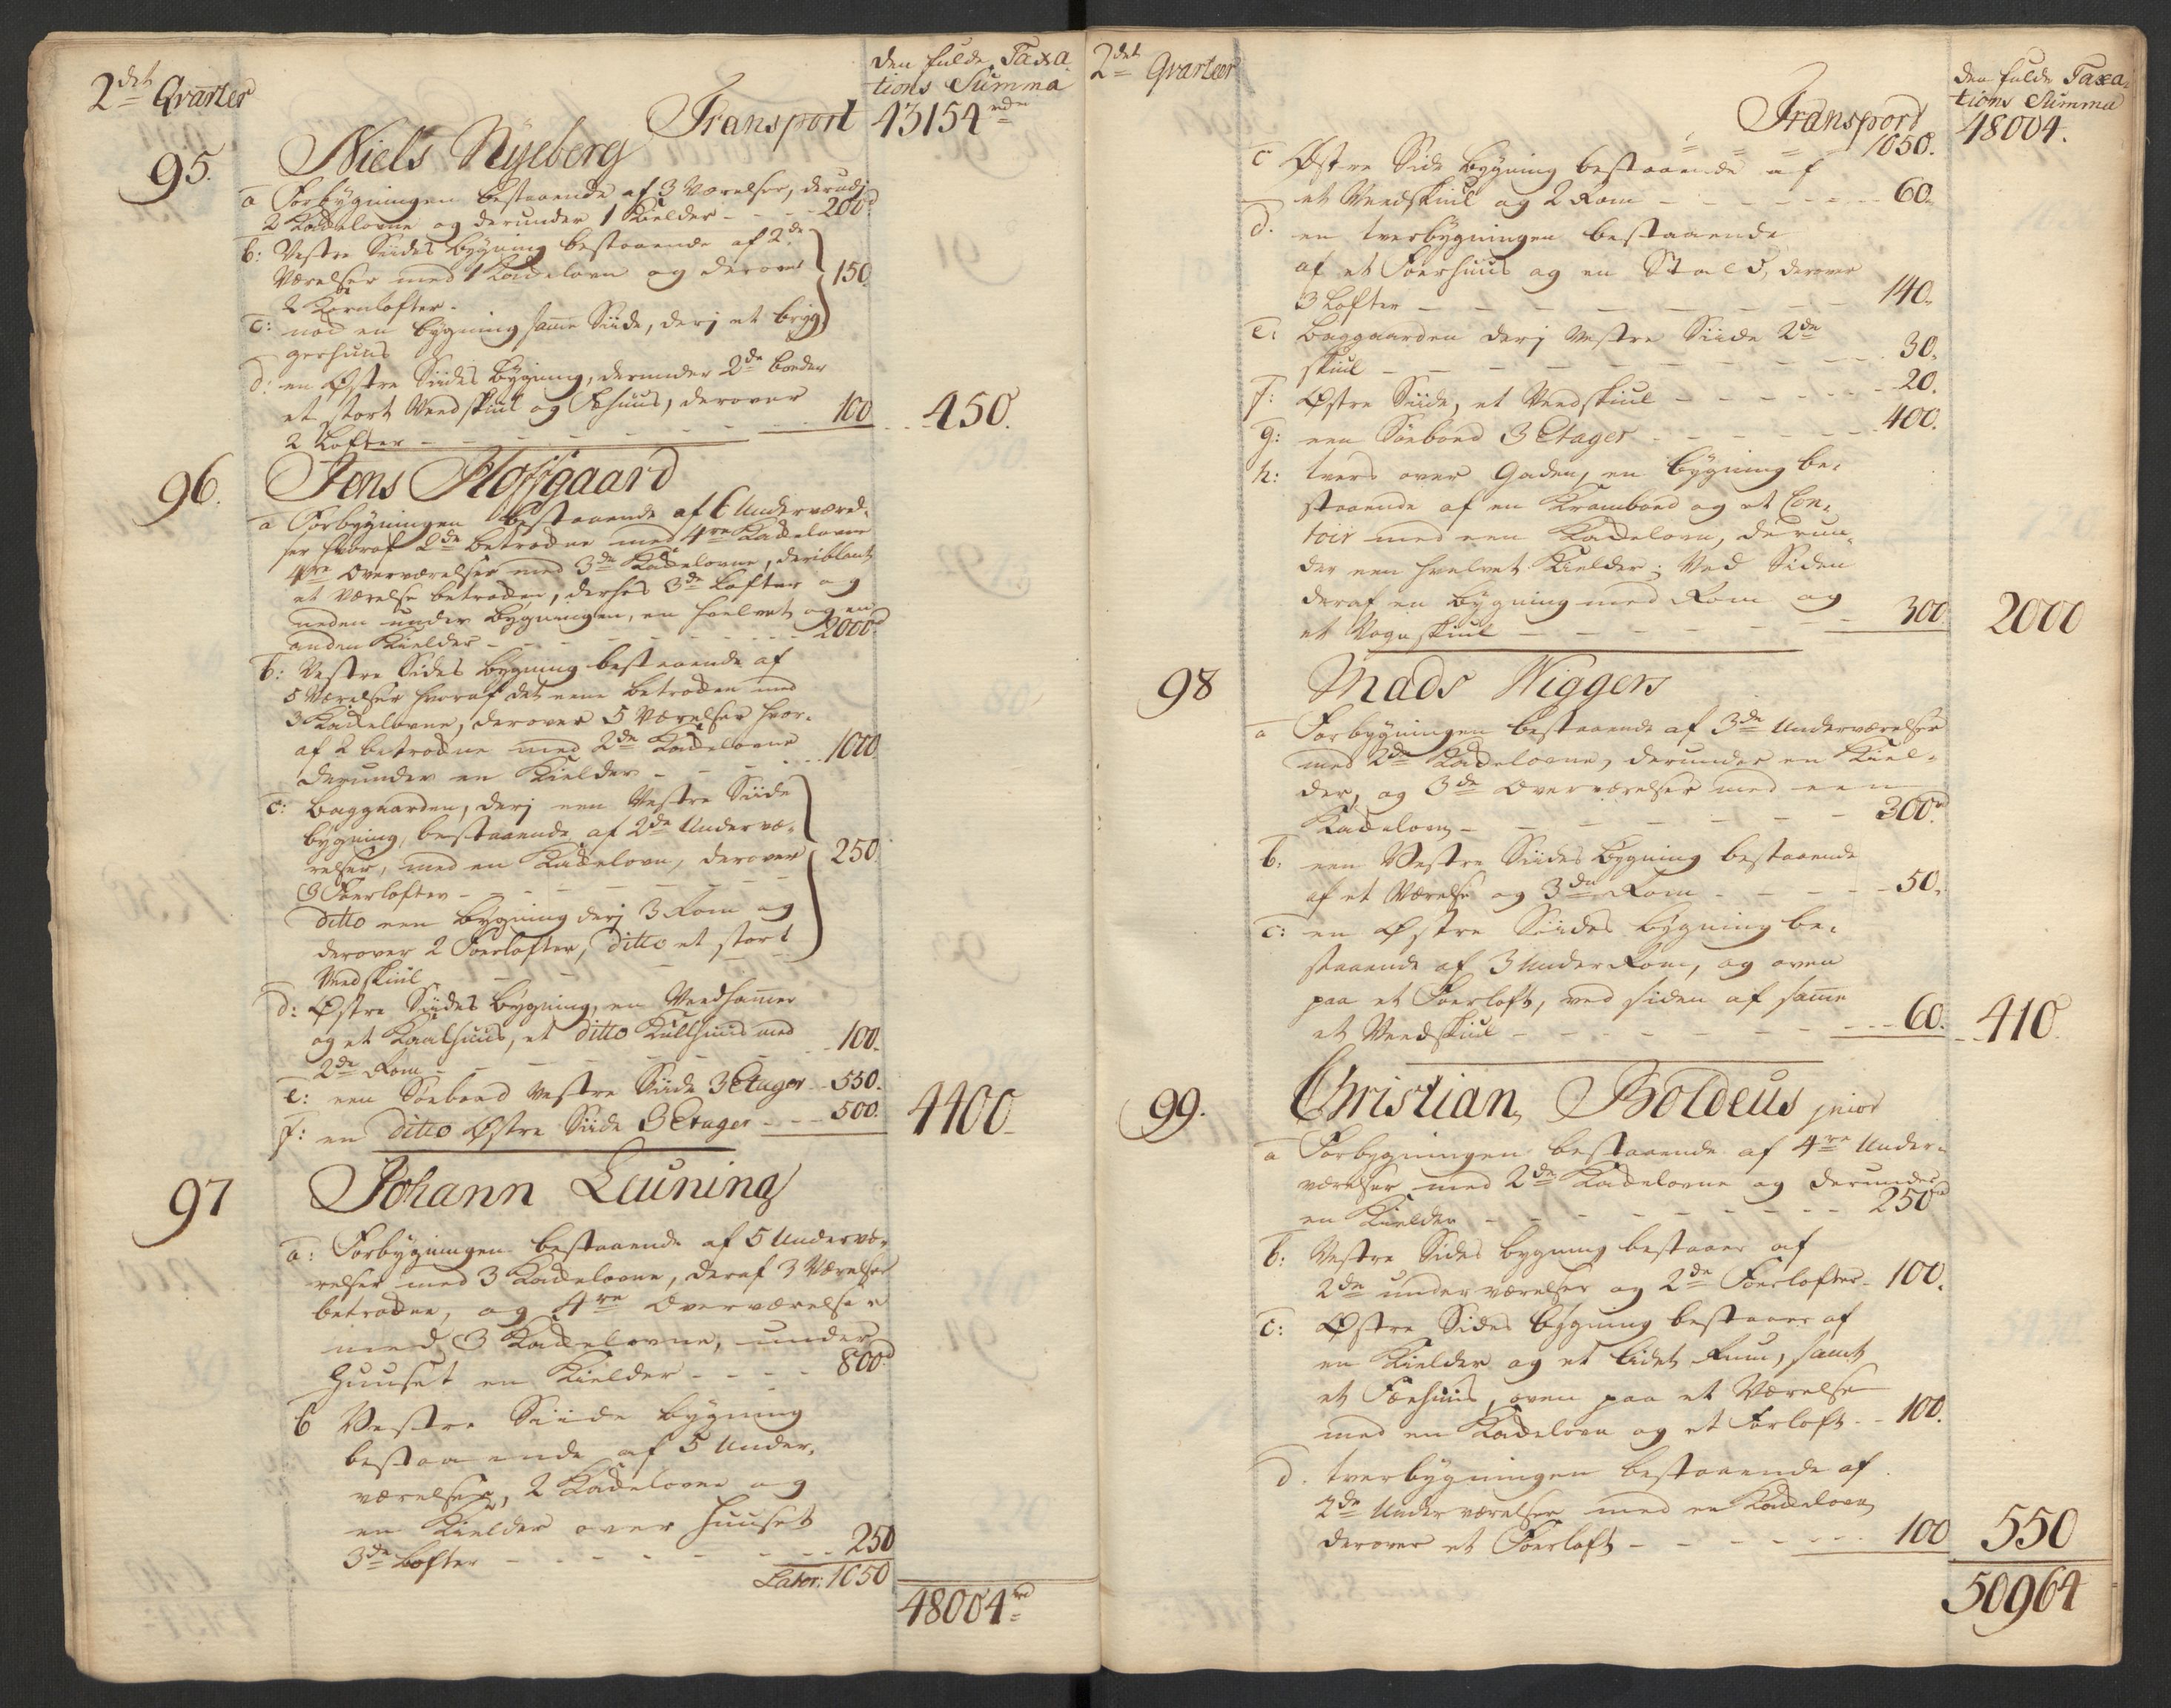 2det Qvarter
den fulde Taxa
tions Summa
Transport 43154rdr
95. Niels Nyeberg
a Forbygningen bestaaende af 3 Værelser, derudj
2 Kackelovne og derunder 1 Kielder - - - 200d
b: Vestre Siides bygning bestaaende af 2de
Værelser med 1 Kackelovn og derover 150.
2 Kornlofter -
c: nock en bygning samme Siide, derj et bryg
gerhuus
d: en Østre Siides bygning, derunder 2de boeder
et stort Veedskiul og Fæhuus, derover
2 Lofter - - - - - - 100 - - 450.
96. Jens Hoffgaard
a Forbygningen bestaaende af 6 Underværel-
ser hvoraf 2de betrockne med 4re Kackelovne
4re Overværelser med 3de Kackelovne, deriblant
et Værelse betrocken, derhos 3de Lofter og
neden under bygningen, en hvelvet og en
anden Kielder - - - - - - - 2000d
b: Vestre Sides bygning bestaaende af
5 Værelser hvoraf det eene betrocken med
3 Kackelovne, derover 5 Værelser hvor-
af 2 betrockne med 2de Kackelovne
derunder en Kielder - - - - - 1000
c: baggaarden, derj een Vestre Siide
bygning, bestaaende af 2de Undervæ-
relser, med en Kackelovn, derover 250.
3 Foerlofter - - - - - - -
ditto een bygning derj 3 Rom og
derover 2 Foerlofter, ditto et stort
Veedskiul - - - -
d: Østre Siides bygning, en Veedhammer
og et Kaalhuus, et ditto Kullhuus med
2de Rom - - - - - - 100.
e: een Søeboed Vestre Siide 3 Etager - - 550.
f: en ditto Østre Siide 3 Etager - - - 500. 4400
97 Johann Leuning
a: Forbygningen bestaaende af 5 Undervæ-
relser med 3 Kackelovne, deraf 3 Værelser
betrockne, og 4re Overværelser
med 3 Kackelovne, under
Huuset en Kielder - - - - 800d
b Vestre Siide bygning
bestaaende af 5 Under-
værelser, 2 Kackelovne og
en Kielder over huuset
3de Lofter - - - - - - - 250
Later: 1050
48004rd
2det Qvarteer
den fulde Taxa-
tions Summa
Transport 48004.
- - - 1050.
c Østre Side bygning bestaaende af
et Veedskiul og 2 Rom - - - - - - 60.
d. en tverbygningen bestaaende
af et Foerhuus og en Stald, derover
3 Lofter - - - - - - - - 140.
e: baggaarden derj Vestre Siide 2de
skiul - - - - - - - - - 30.
f: Østre Siide, et Veedskiul - - - - - - 20.
g: een Søeboed 3 Etager - - - - - - 400.
h: tvers over Gaden, en bygning be-
staaende af en Kramboed og et Con-
toir med een Kackelovn, derun-
der een hvelvet Kielder; Ved Siden
deraf en bygning med Rom og
et Vognskiul - - - - - - - 300 2000
98 Mads Wiggers
a Forbygningen bestaaende af 3de Underværelser
med 2de Kackelovne, derunder en Kiel-
der, og 3de Overværelser med een
Kackelovn - - - - - - - 300d
b: een Vestre Siides bygning bestaaende
af et Værelse og 3de Rom - - - - - 50.
c: en Østre Siides bygning be-
staaende af 3 Under Rom, og oven
paa et Foerloft, ved siden af samme
et Veedskiul - - - - - - - - 60. - - 410.
99. Christian Boldeus junior
a Forbygningen bestaaende af 4re Under-
værelser med 2de Kackelovne og derunder
en Kielder - - - - - - - - 250d
b: Vestre Sides bygning bestaaer af
2de underværelser og 2de Foerlofter - 100.
c: Østre Sides bygning bestaaer af
en Kielder og et lidet Rum, samt
et Fæehuus, oven paa et Værelse
med en Kackelovn og et Forloft - - 100.
d. tverbygningen bestaaende af
2de Underværelser med en Kackelovn
derover et Foerloft - - - - - - 100 550
50964